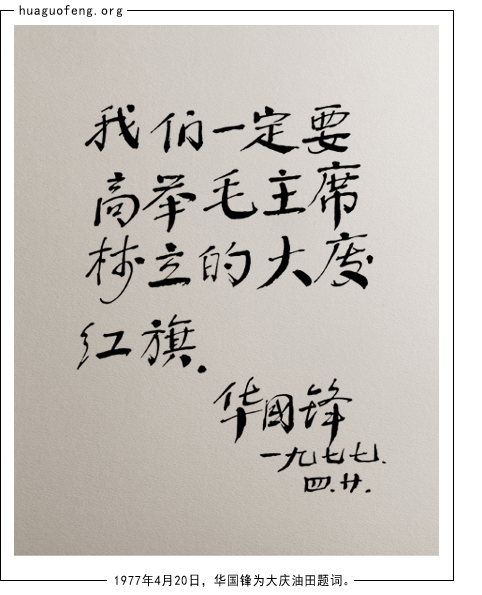 huaguofeng.org
我们一定要
高举毛主席
树立的大庆
红旗.
华国锋
一九七七.
四.廿.
1977年4月20日，华国锋为大庆油田题词。